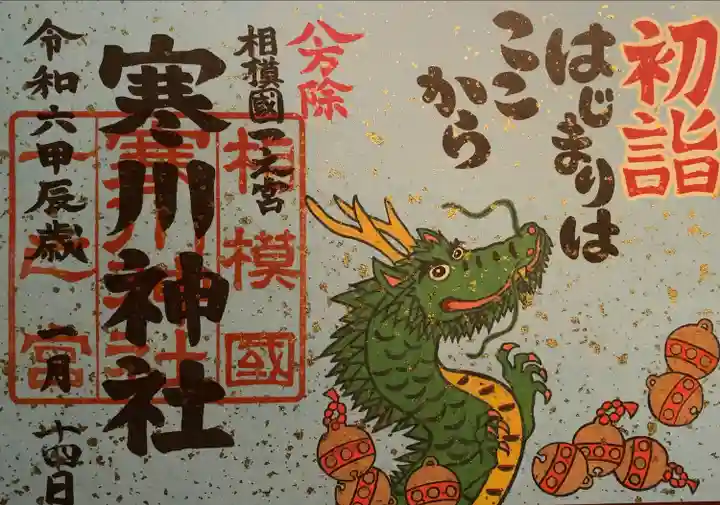 初詣
はじまりは
ここ
から
八方除
相模國一之宮
寒川神社
令和六甲辰歳 一月 十四日
相模國
寒川神社
一之宮